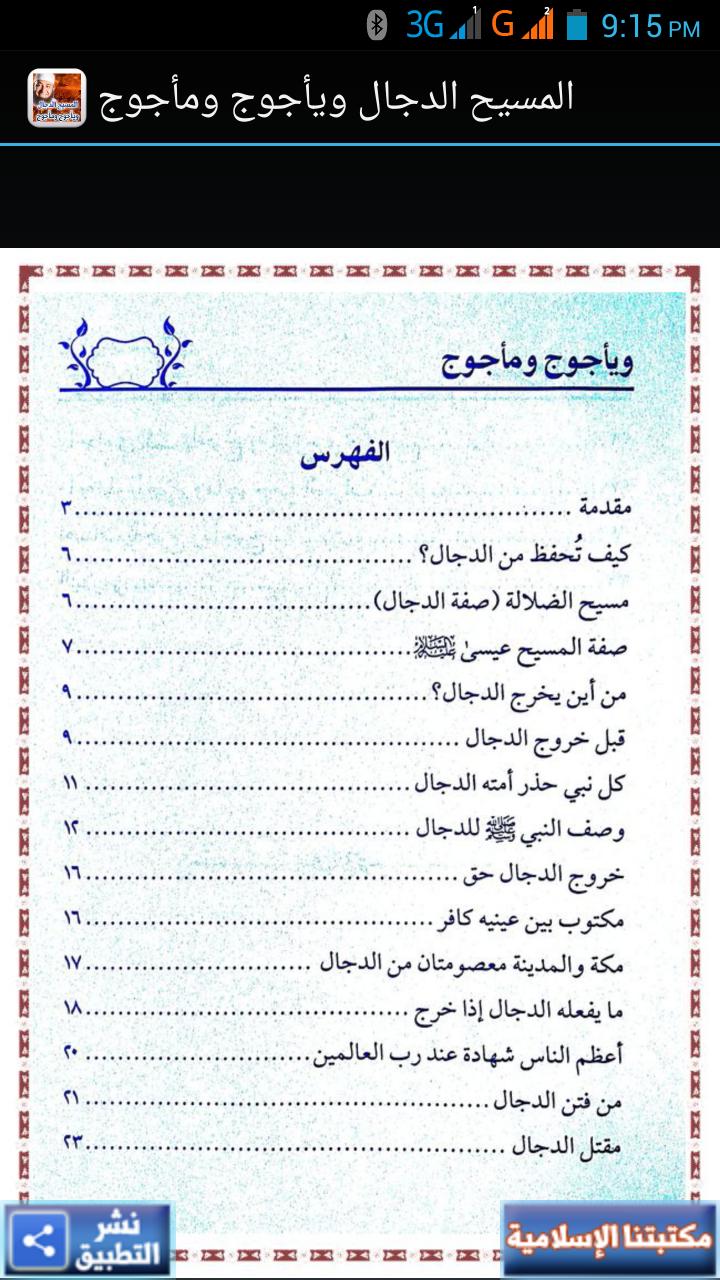 3G 1 G 2 9:15 PM
المسيح الدجال ويأجوج ومأجوج
ويأجوج ومأجوج
الفهرس
مقدمة ........................................................ ٣
كيف تُحفظ من الدجال؟ ........................................ ٦
مسيح الضلالة (صفة الدجال) ................................... ٦
صفة المسيح عيسىٰ عليه السلام ........................................ ٧
من أين يخرج الدجال؟ ......................................... ٩
قبل خروج الدجال ............................................. ٩
كل نبي حذر أمته الدجال ...................................... ١١
وصف النبي ﷺ للدجال ........................................ ١٢
خروج الدجال حق ............................................. ١٦
مكتوب بين عينيه كافر ........................................ ١٦
مكة والمدينة معصومتان من الدجال ............................ ١٧
ما يفعله الدجال إذا خرج ...................................... ١٨
أعظم الناس شهادة عند رب العالمين ............................ ٢٠
من فتن الدجال ............................................... ٢١
مقتل الدجال ................................................. ٢٣
نشر التطبيق
مكتبتنا الإسلامية